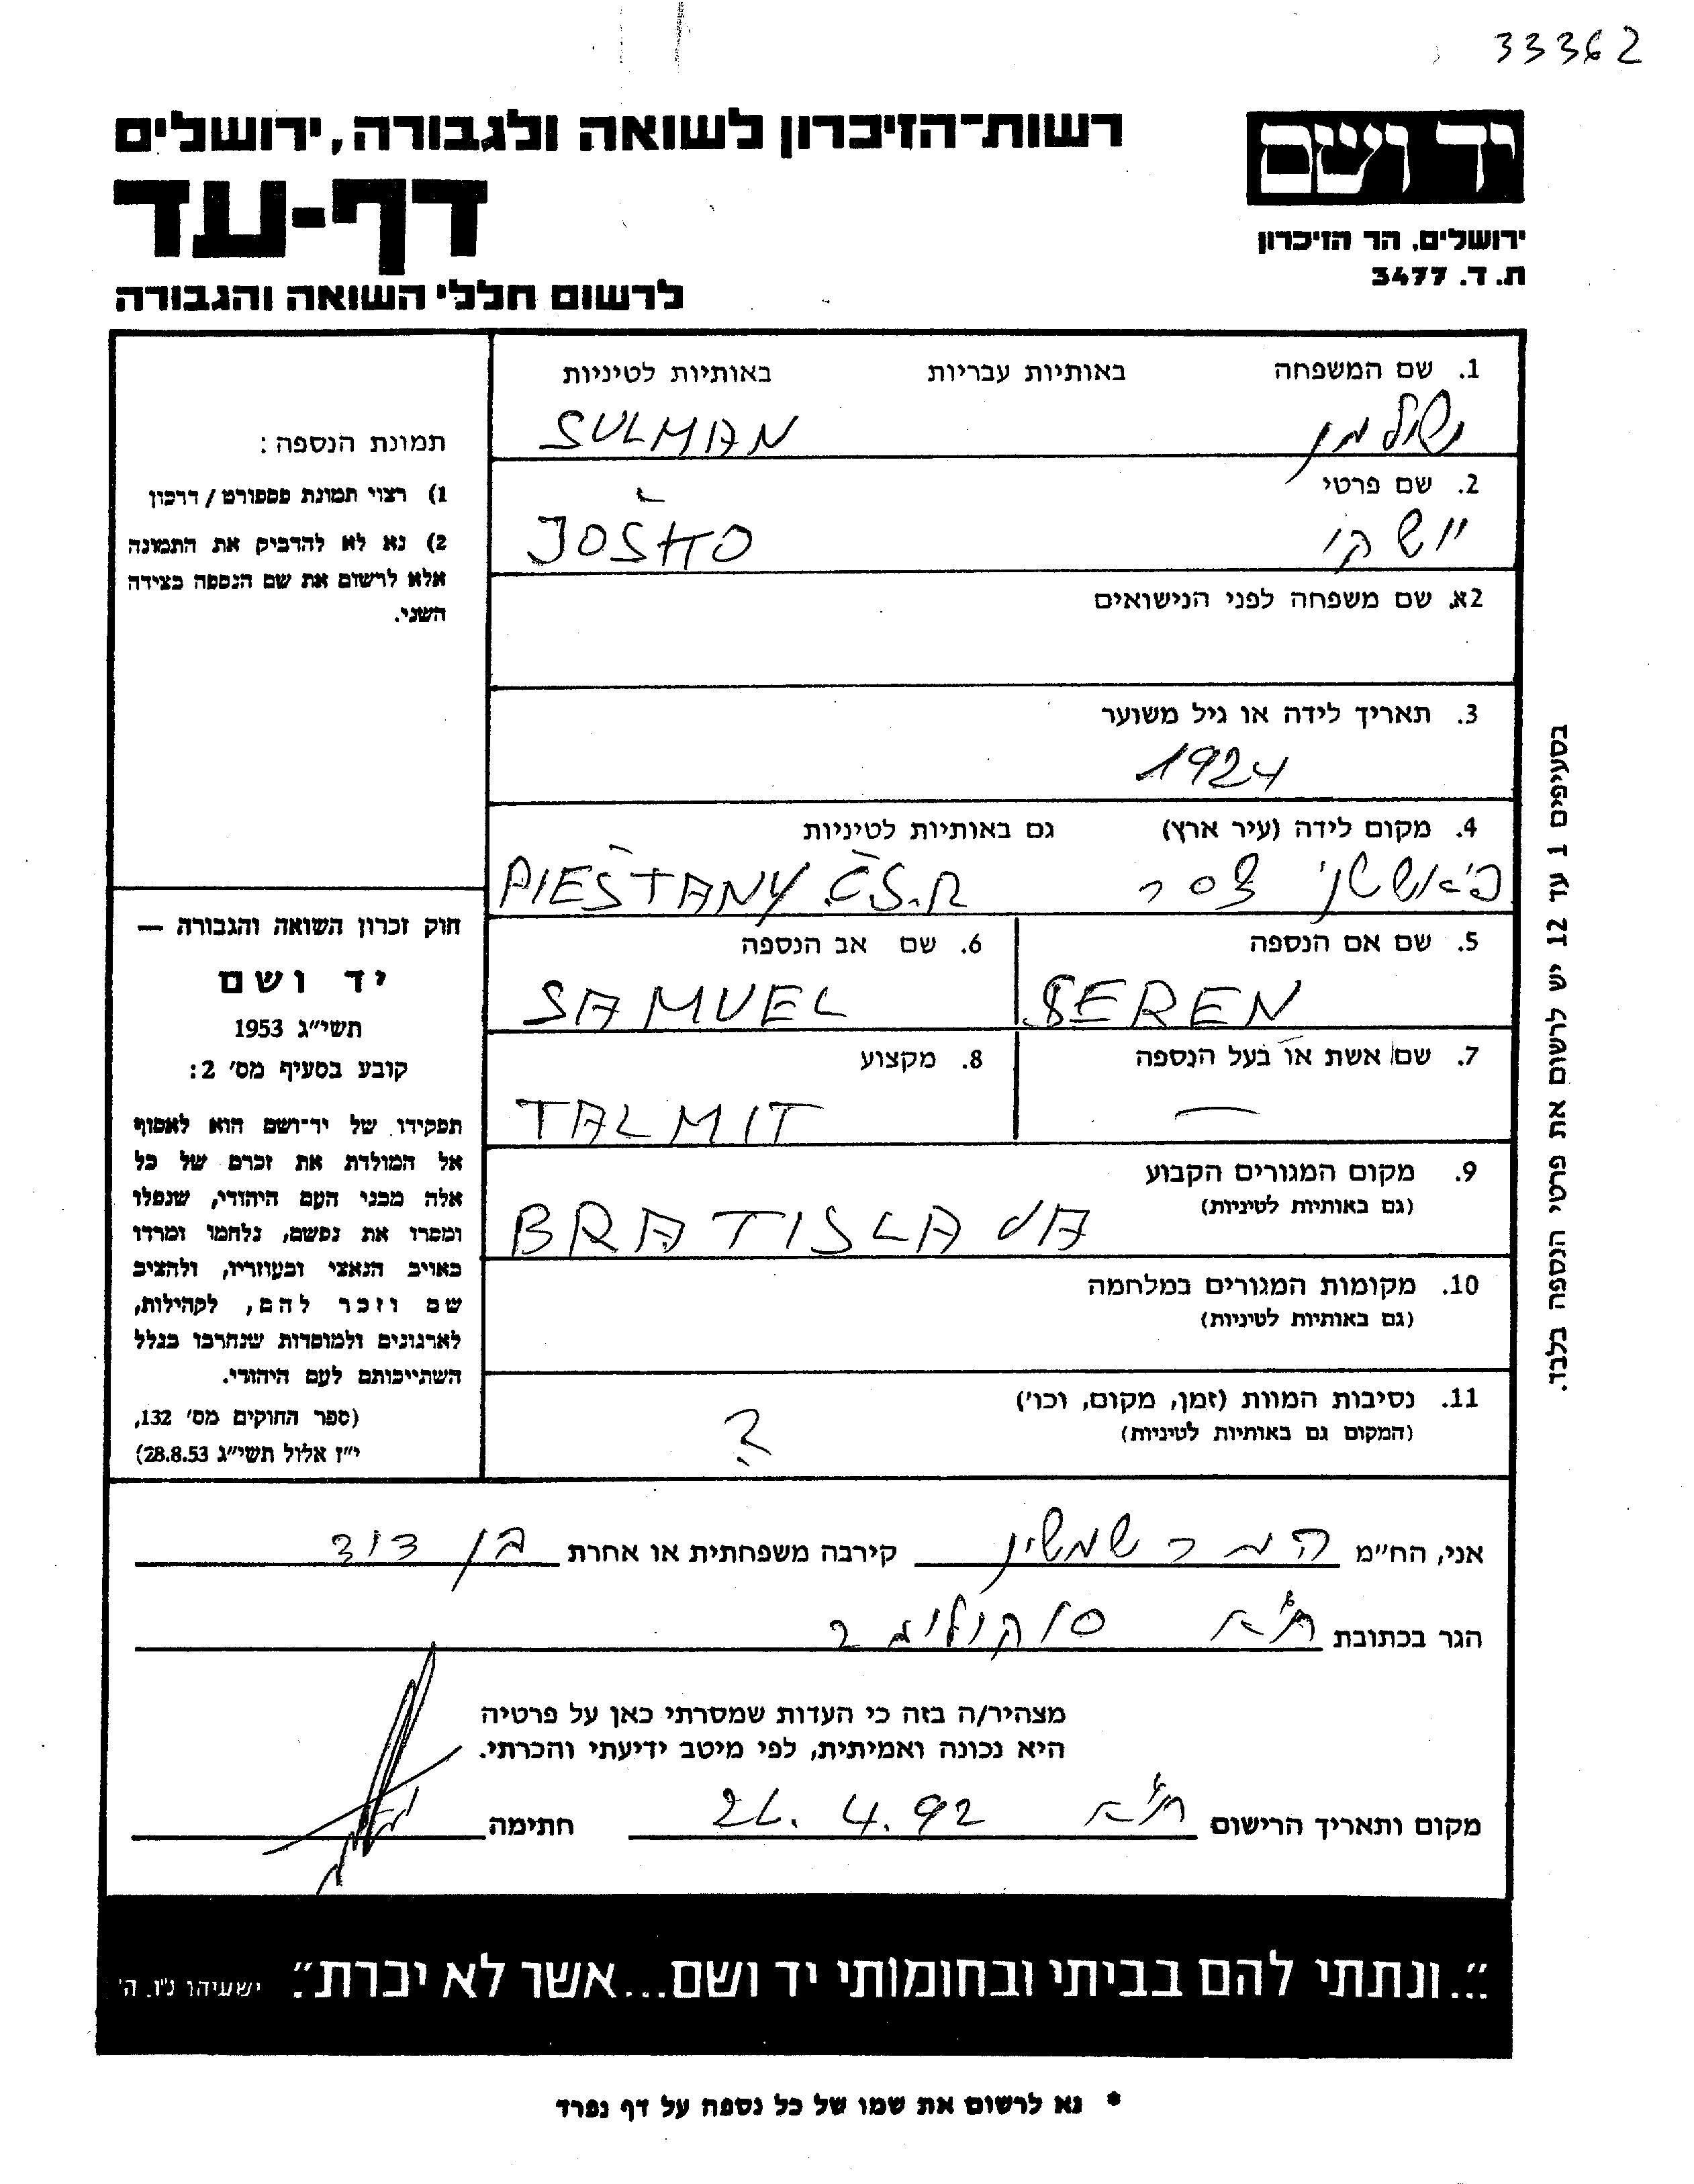 33362
יד ושם
ירושלים, הר הזיכרון
ת. ד. 3477
רשות־הזיכרון לשואה ולגבורה, ירושלים
דף-עד
לרשום חללי השואה והגבורה
1. שם המשפחה באותיות עבריות באותיות לטיניות
שולמן SULMAN
2. שם פרטי
יושקו JOŠKO
2א. שם משפחה לפני הנישואים
3. תאריך לידה או גיל משוער
1924
4. מקום לידה (עיר ארץ) גם באותיות לטיניות
פיאששני צסר PIEŠTANY ČS.R
5. שם אם הנספה 6. שם אב הנספה
SEREN SAMUEL
7. שם אשת או בעל הנספה 8. מקצוע
— TALMIT
9. מקום המגורים הקבוע
(גם באותיות לטיניות)
BRATISLAVA
10. מקומות המגורים במלחמה
(גם באותיות לטיניות)
11. נסיבות המוות (זמן, מקום, וכו')
(המקום גם באותיות לטיניות)
?
תמונת הנספה:
1) רצוי תמונת פספורט / דרכון
2) נא לא להדביק את התמונה
אלא לרשום את שם הנספה בצידה
השני.
חוק זכרון השואה והגבורה —
יד ושם
תשי״ג 1953
קובע בסעיף מס׳ 2:
תפקידו של יד־ושם הוא לאסוף
אל המולדת את זכרם של כל
אלה מבני העם היהודי, שנפלו
ומסרו את נפשם, נלחמו ומרדו
באויב הנאצי ובעוזריו, ולהציב
שם וזכר להם, לקהילות,
לארגונים ולמוסדות שנחרבו בגלל
השתייכותם לעם היהודי.
(ספר החוקים מס׳ 132,
י״ז אלול תשי״ג 28.8.53)
בסעיפים 1 עד 12 יש לרשום את פרטי הנספה בלבד.
אני, הח״מ שמשון קירבה משפחתית או אחרת בן דוד
הגר בכתובת ת״א סוקולוב
מצהיר/ה בזה כי העדות שמסרתי כאן על פרטיה
היא נכונה ואמיתית, לפי מיטב ידיעתי והכרתי.
מקום ותאריך הרישום ת״א 26.4.92 חתימה
״...ונתתי להם בביתי ובחומותי יד ושם...אשר לא יכרת״. ישעיהו נ״ו. ה׳
* נא לרשום את שמו של כל נספה על דף נפרד